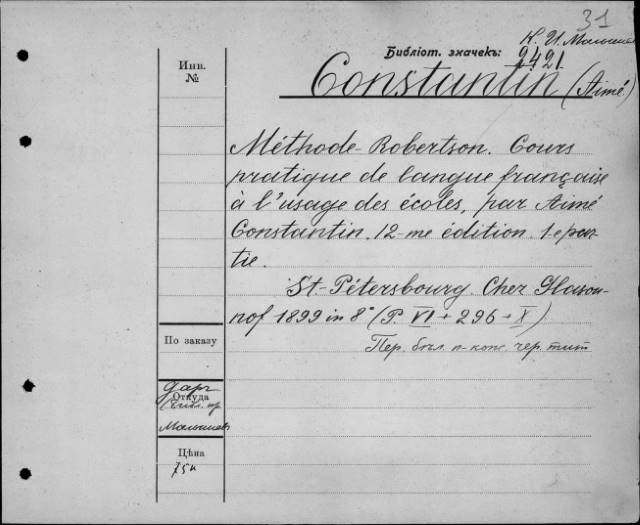 31
К. И. Малышев
Библіот. значекъ: 2421.
Инв. №
Constantin (Aimé)
Méthode Robertson. Cours
pratique de langue française
à l'usage des écoles, par Aimé
Constantin. 12-me édition. 1-e par-
tie.
St-Pétersbourg. Chez Glasou-
nof 1899 in 8° (P. VI + 296 + X)
По заказу
Пер. бѣл. п-кож. чер. тит
даръ
Откуда
Малышев
Цѣна
75к